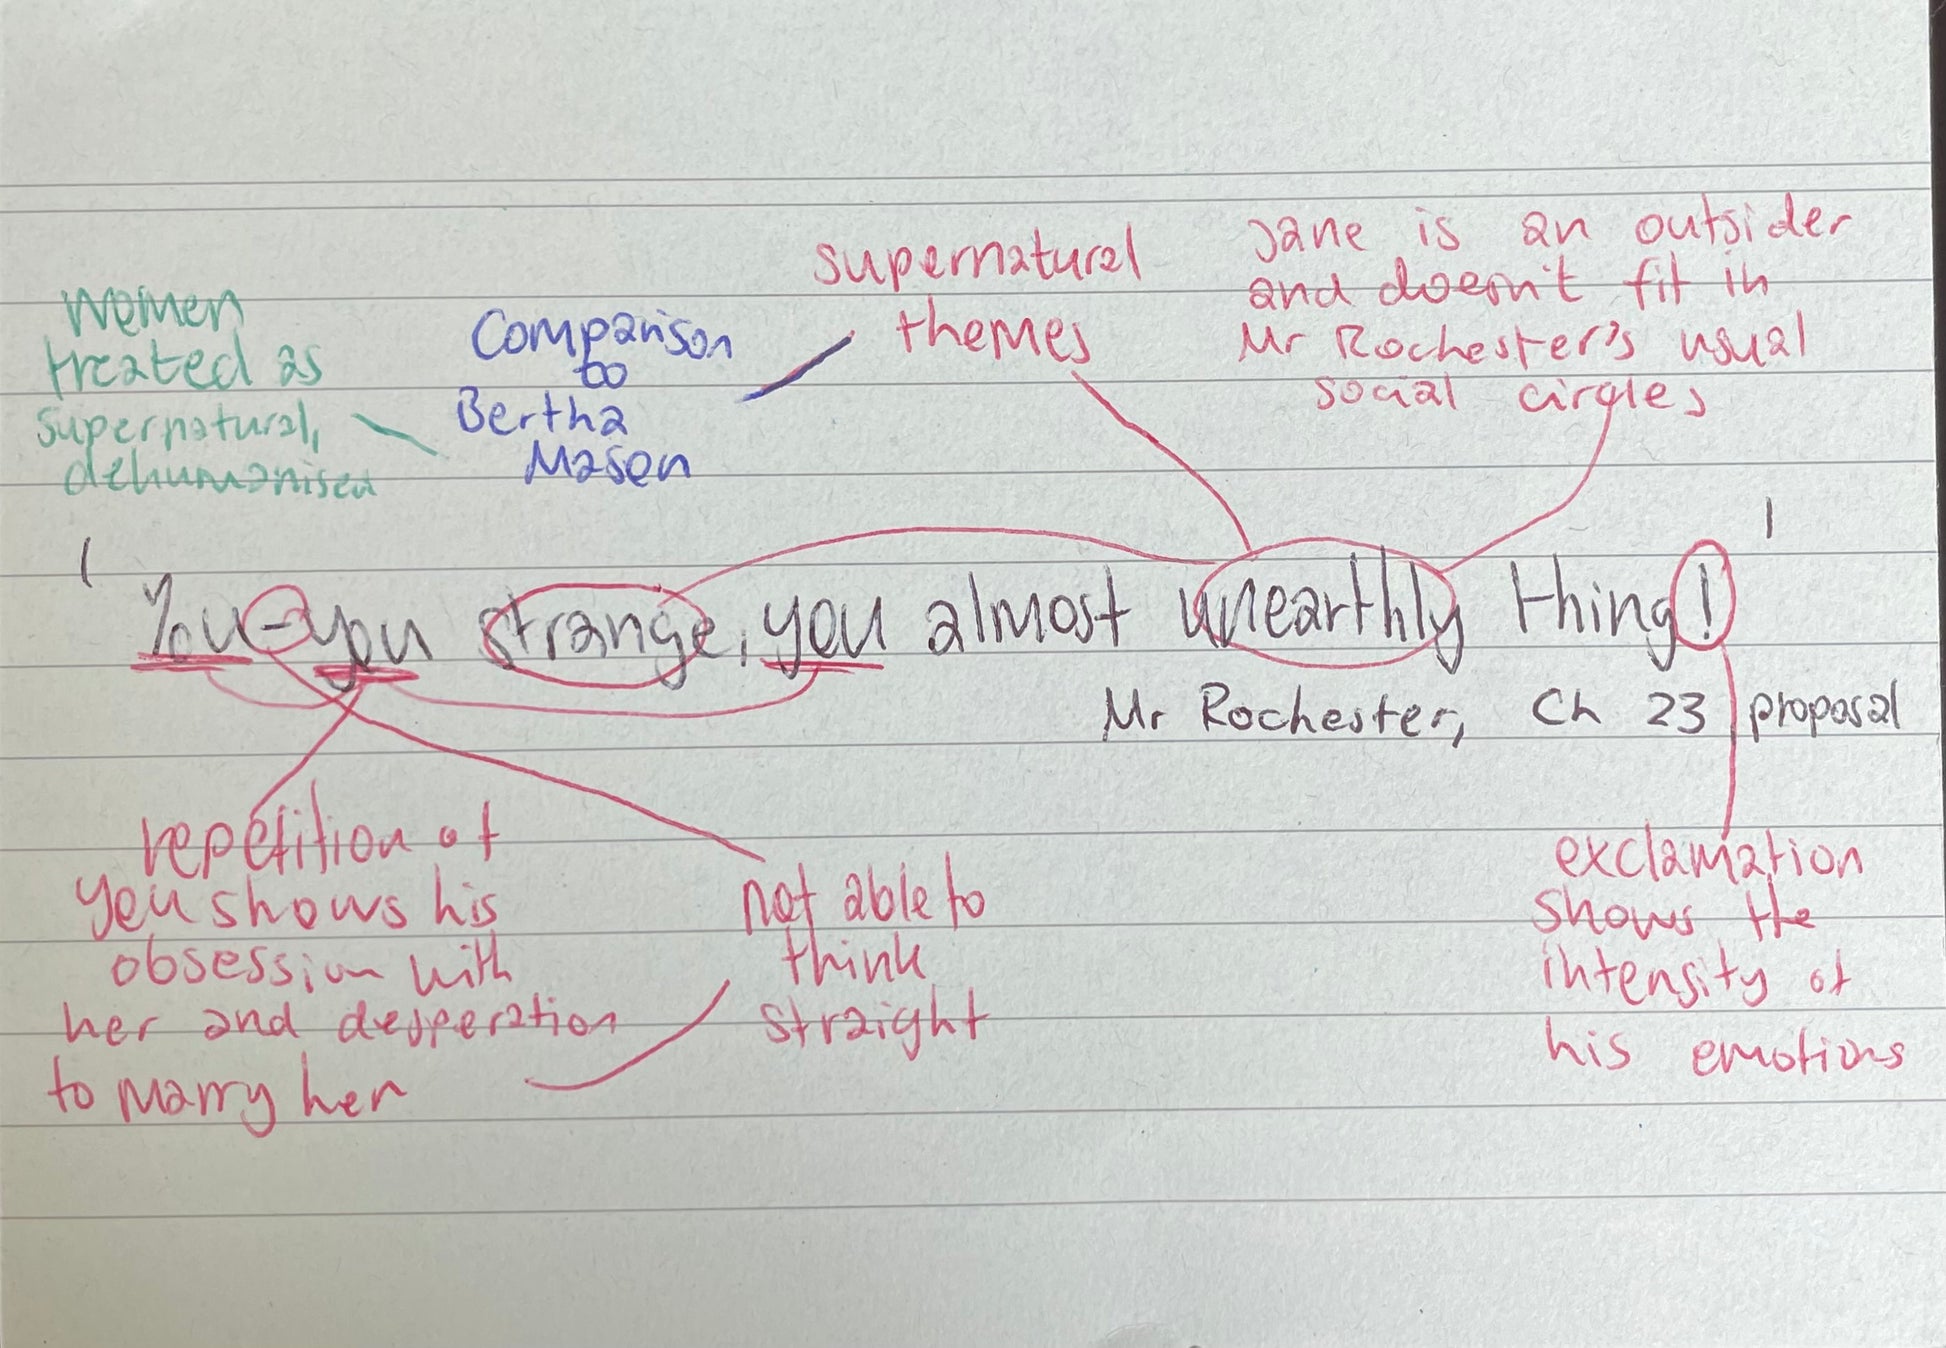 supernatural
themes
Jane is an outsider
and doesn't fit in
Mr Rochester's usual
social circles
Women
treated as
supernatural,
dehumanised
Comparison
to
Bertha
Mason
'You-you strange, you almost unearthly thing!'
Mr Rochester, Ch 23 proposal
repetition of
you shows his
obsession with
her and desperation
to marry her
not able to
think
straight
exclamation
shows the
intensity of
his emotions